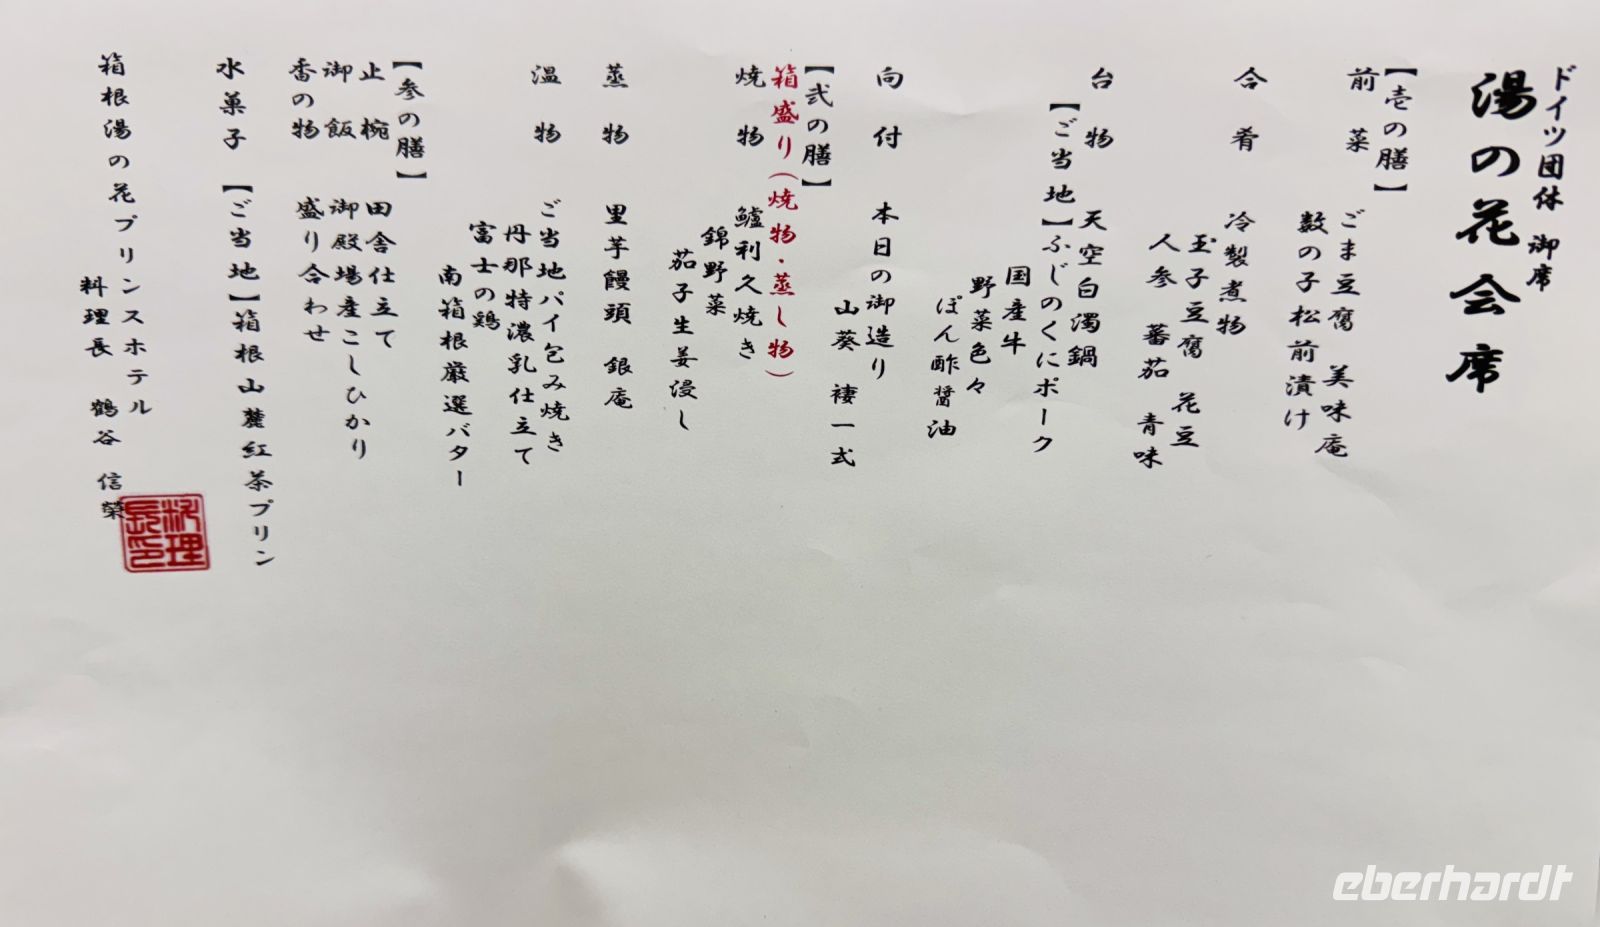 ドイツ団体 御席
湯の花会席
【壱の膳】
前菜 ごま豆腐 美味庵
数の子松前漬け
合肴 冷製煮物
玉子豆腐 花豆
人参 蕃茄 青味
台物 天空白濁鍋
【ご当地】ふじのくにポーク
国産牛
野菜色々
ぽん酢醤油
向付 本日の御造り
山葵 褄一式
【弐の膳】
箱盛り（焼物・蒸し物）
焼物 鱸利久焼き
錦野菜
茄子生姜浸し
蒸物 里芋饅頭 銀庵
温物 ご当地パイ包み焼き
丹那特濃乳仕立て
富士の鶏
南箱根厳選バター
【参の膳】
止椀 田舎仕立て
御飯 御殿場産こしひかり
香の物 盛り合わせ
水菓子 【ご当地】箱根山麓紅茶プリン
箱根湯の花プリンスホテル
料理長 鶴谷 信榮
料理長印
eberhardt